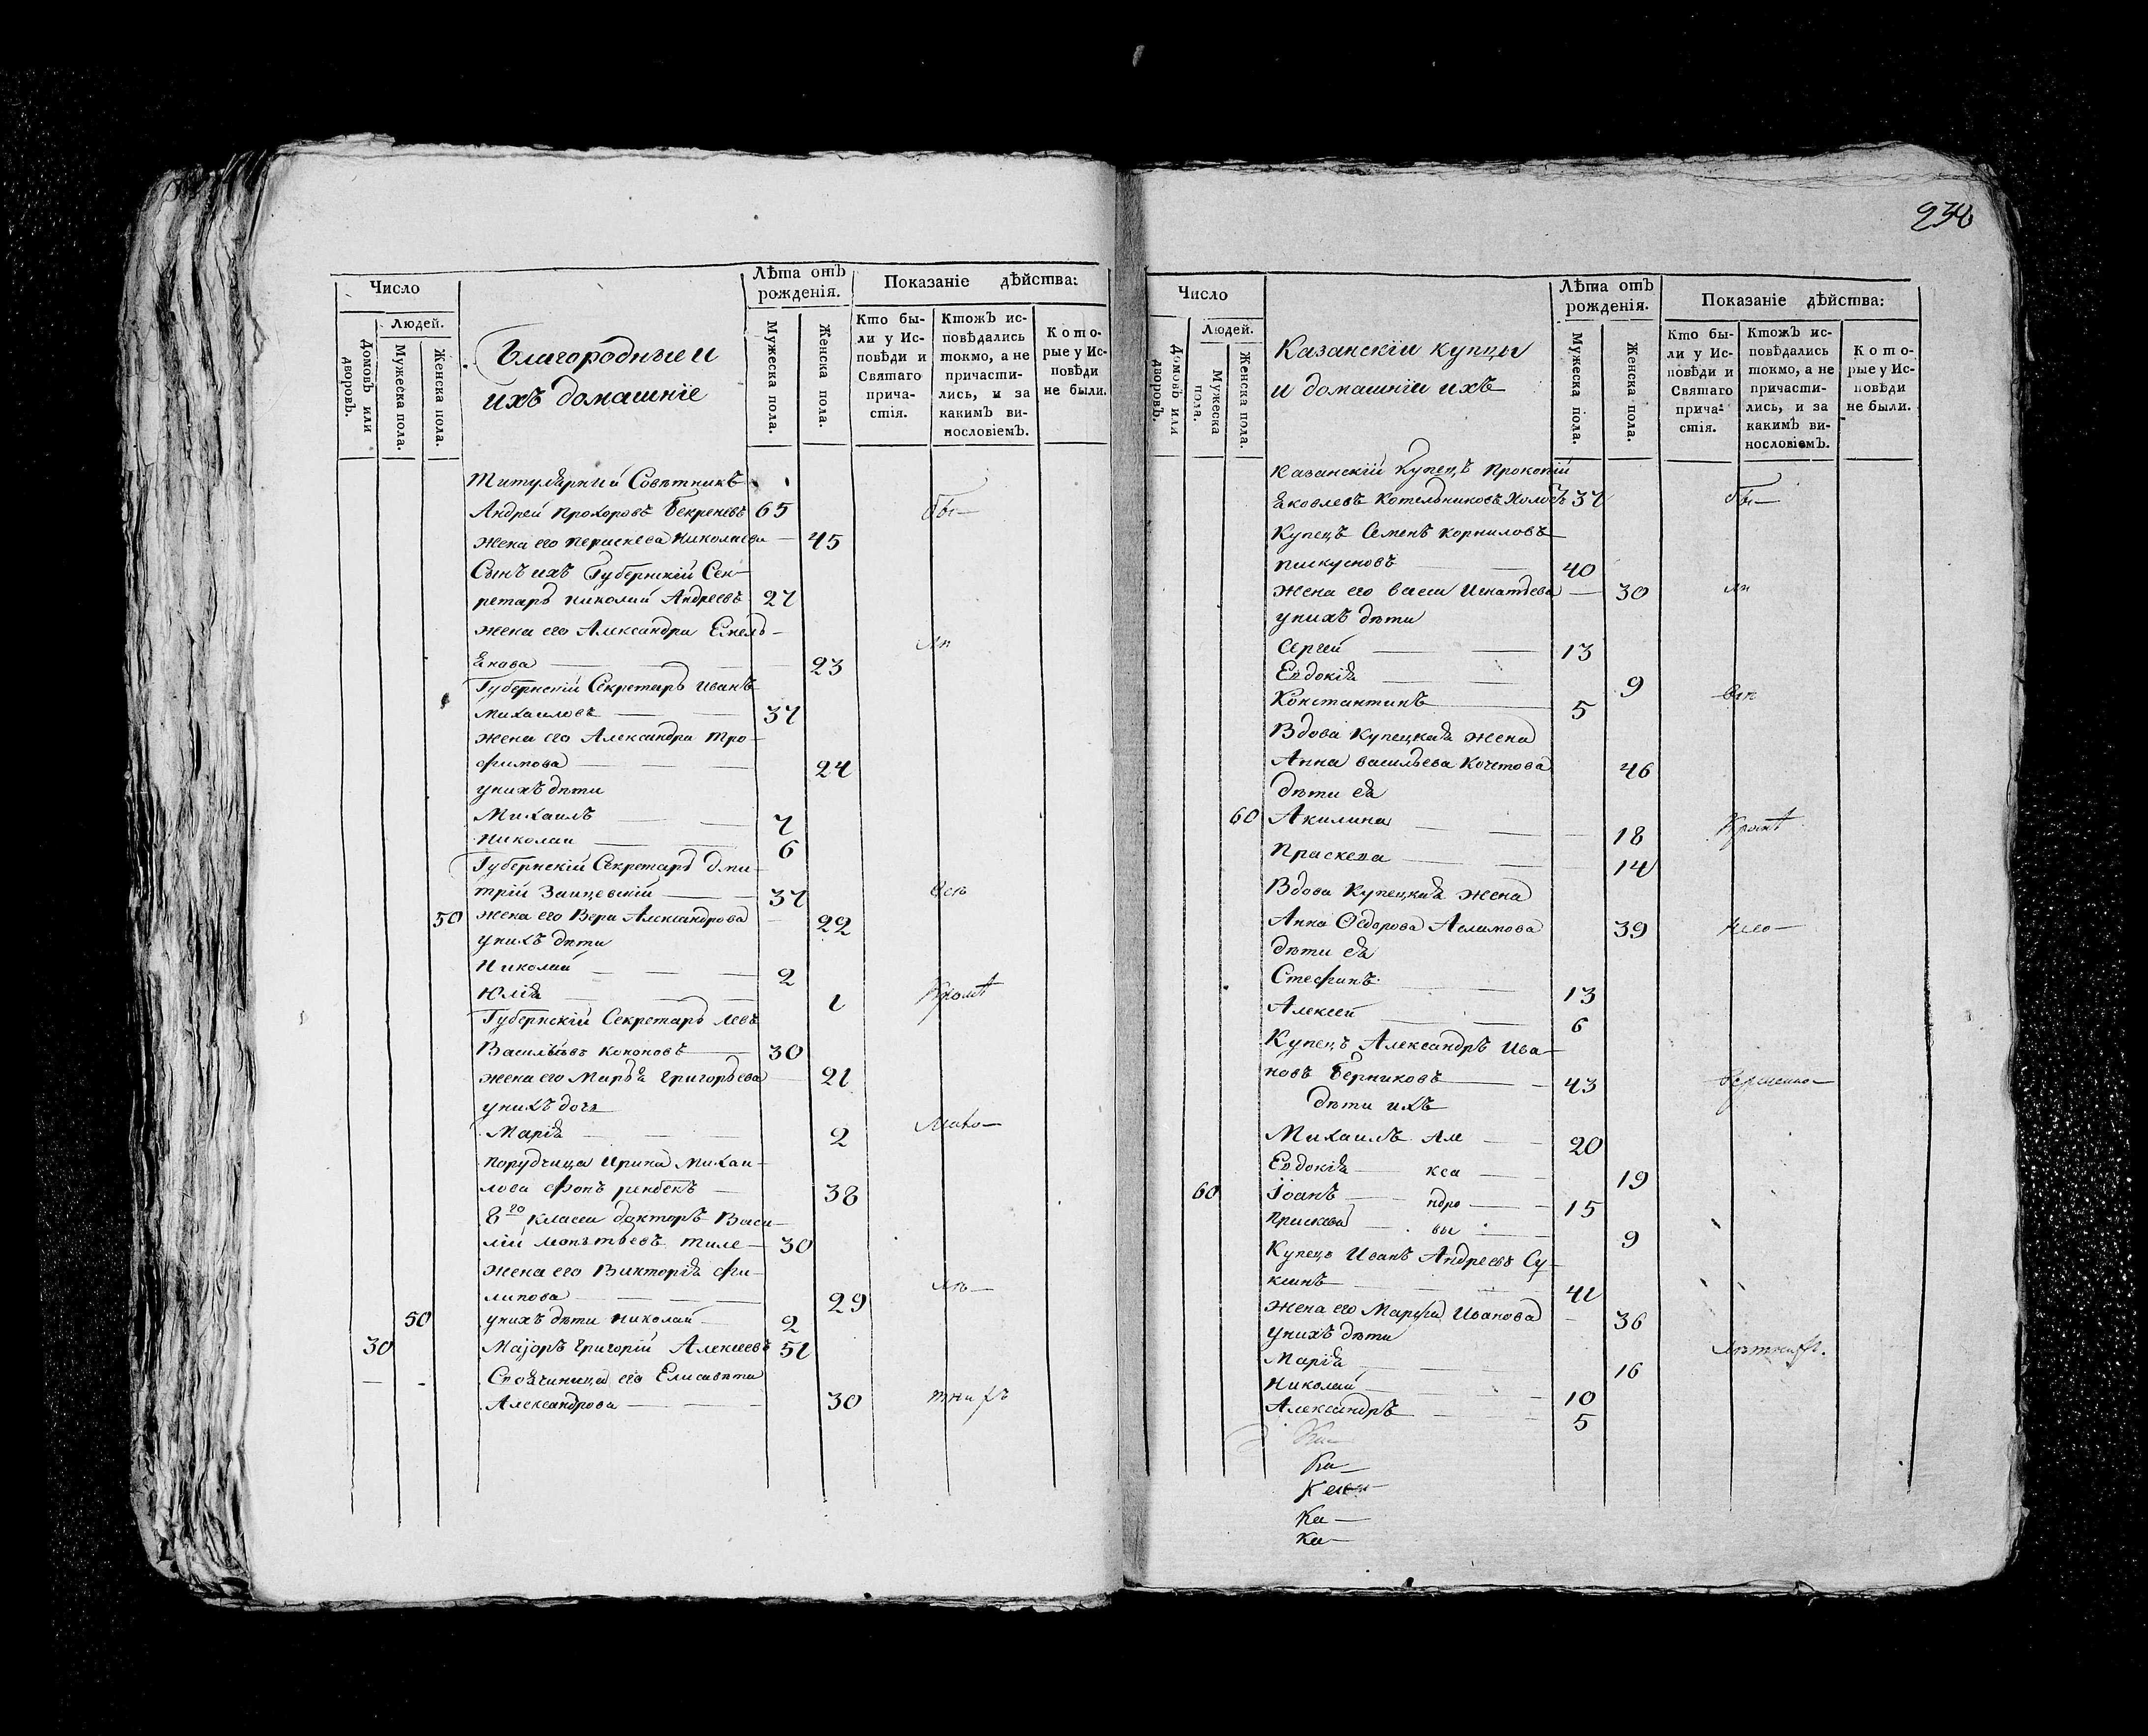 Число
Людей.
Домовъ или дворовъ.
Мужеска пола.
Женска пола.
Благородные и
ихъ домашніе
Лѣта отъ
рожденія.
Мужеска пола.
Женска пола.
Показаніе дѣйства:
Кто бы-
ли у Ис-
повѣди и
Святаго
прича-
стія.
Ктожъ ис-
повѣдались
токмо, а не
причасти-
лись, и за
какимъ ви-
нословіемъ.
Кото-
рые у Ис-
повѣди
не были.
Титулярный Совѣтникъ
Андрей Прохоровъ Бекреневъ 65 бы
жена его Параскева Николаева 45
Сынъ ихъ Губернскій Сек-
ретарь Николай Андреевъ 27
жена его Александра Емель-
янова 23 ли
Губернскій Секретарь Иванъ
Михаиловъ 37
жена его Александра Тро-
фимова 24
у нихъ дѣти
Михаилъ 7
Николай 6
Губернскій Секретарь Дми-
трій Заицевскій 37 всѣ
50 жена его Вера Александрова 22
у нихъ дѣти
Николай 2
Юлія 1 кромѣ
Губернскій Секретарь Левъ
Васильевъ Кононовъ 30
жена его Марья Григорьева 21
у нихъ дочь
Марія 2 мало
Порудчица Ирина Михаи-
лова фонъ ренбекъ 38
8го класса докторъ Васи-
лій 30
жена его Викторія Фи-
липова 29 лѣ
50 у нихъ дѣти Николай 2
30 Маіоръ Григорій Алексеевъ 51
Своячиница его Елисавета
Александрова 30 тнихъ
234
Число
Людей.
Домовъ или дворовъ.
Мужеска пола.
Женска пола.
Казанскіи купцы
и домашніи ихъ
Лѣта отъ
рожденія.
Мужеска пола.
Женска пола.
Показаніе дѣйства:
Кто бы-
ли у Ис-
повѣди и
Святаго
прича-
стія.
Ктожъ ис-
повѣдались
токмо, а не
причасти-
лись, и за
какимъ ви-
нословіемъ.
Кото-
рые у Ис-
повѣди
не были.
Казанскій Купецъ Прокопій
Яковлевъ Котельниковъ Холос 37 бы
Купецъ Семенъ Корниловъ
Пискуновъ 40
жена его Васса Игнатьева 30 ли
у нихъ дѣти
Сергей 13
Евдокія 9 всѣ
Константинъ 5
Вдова Купецкая жена
Анна Васильева Кочетова 46
дѣти ея
60 Акилина 18 Кромѣ
Праскева 14
Вдова Купецкая жена
Анна Ѳедорова Аслимова 39
дѣти ея
Стефанъ 13
Алексей 6
Купецъ Александръ Ива-
новъ Берниковъ 43 вершенно
дѣти ихъ
Михаилъ Але 20
Евдокія кса 19
60 Іоанъ ндро 15
Праскева вы 9
Купецъ Иванъ Андреевъ Су-
кинъ 41
жена его Марфа Иванова 36
у нихъ дѣти
Марія 16 лѣтнихъ.
Николай 10
Александръ 5
Ка
Ка
Ка